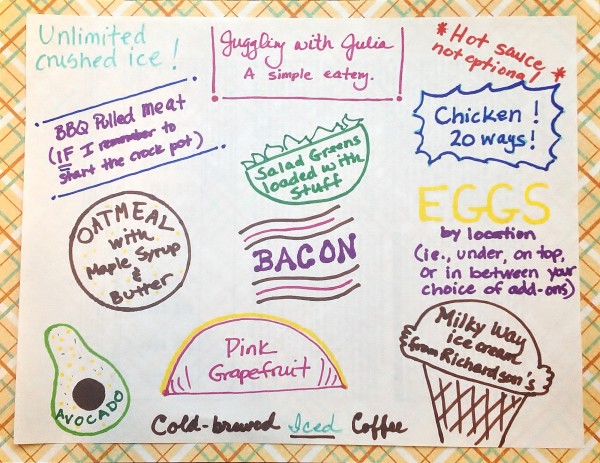 Unlimited
crushed ice!
Juggling with Julia
A simple eatery.
* Hot sauce, *
not optional!
BBQ Pulled Meat
(IF I remember to
start the crock pot)
Salad Greens
loaded with
Stuff
Chicken!
20 ways!
OATMEAL
with
Maple Syrup
&
Butter
BACON
EGGS
by location
(ie., under, on top,
or in between your
choice of add-ons)
AVOCADO
Pink
Grapefruit
Milky Way
ice cream
from Richardson's
Cold-brewed Iced Coffee